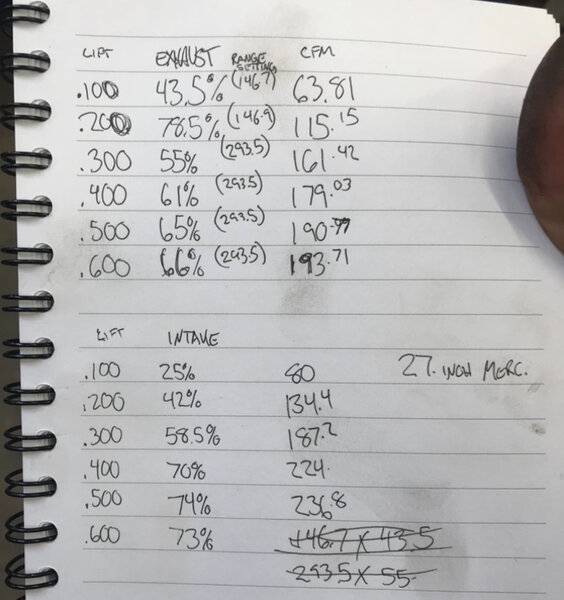 LIFT EXHAUST RANGE SETTING CFM
.100 43.5% (146.7) 63.81
.200 78.5% (146.9) 115.15
.300 55% (293.5) 161.42
.400 61% (293.5) 179.03
.500 65% (293.5) 190.77
.600 66% (293.5) 193.71
LIFT INTAKE
.100 25% 80 27. INCH MERC.
.200 42% 134.4
.300 58.5% 187.2
.400 70% 224.
.500 74% 236.8
.600 73% 146.7 X 43.5
293.5 X 55